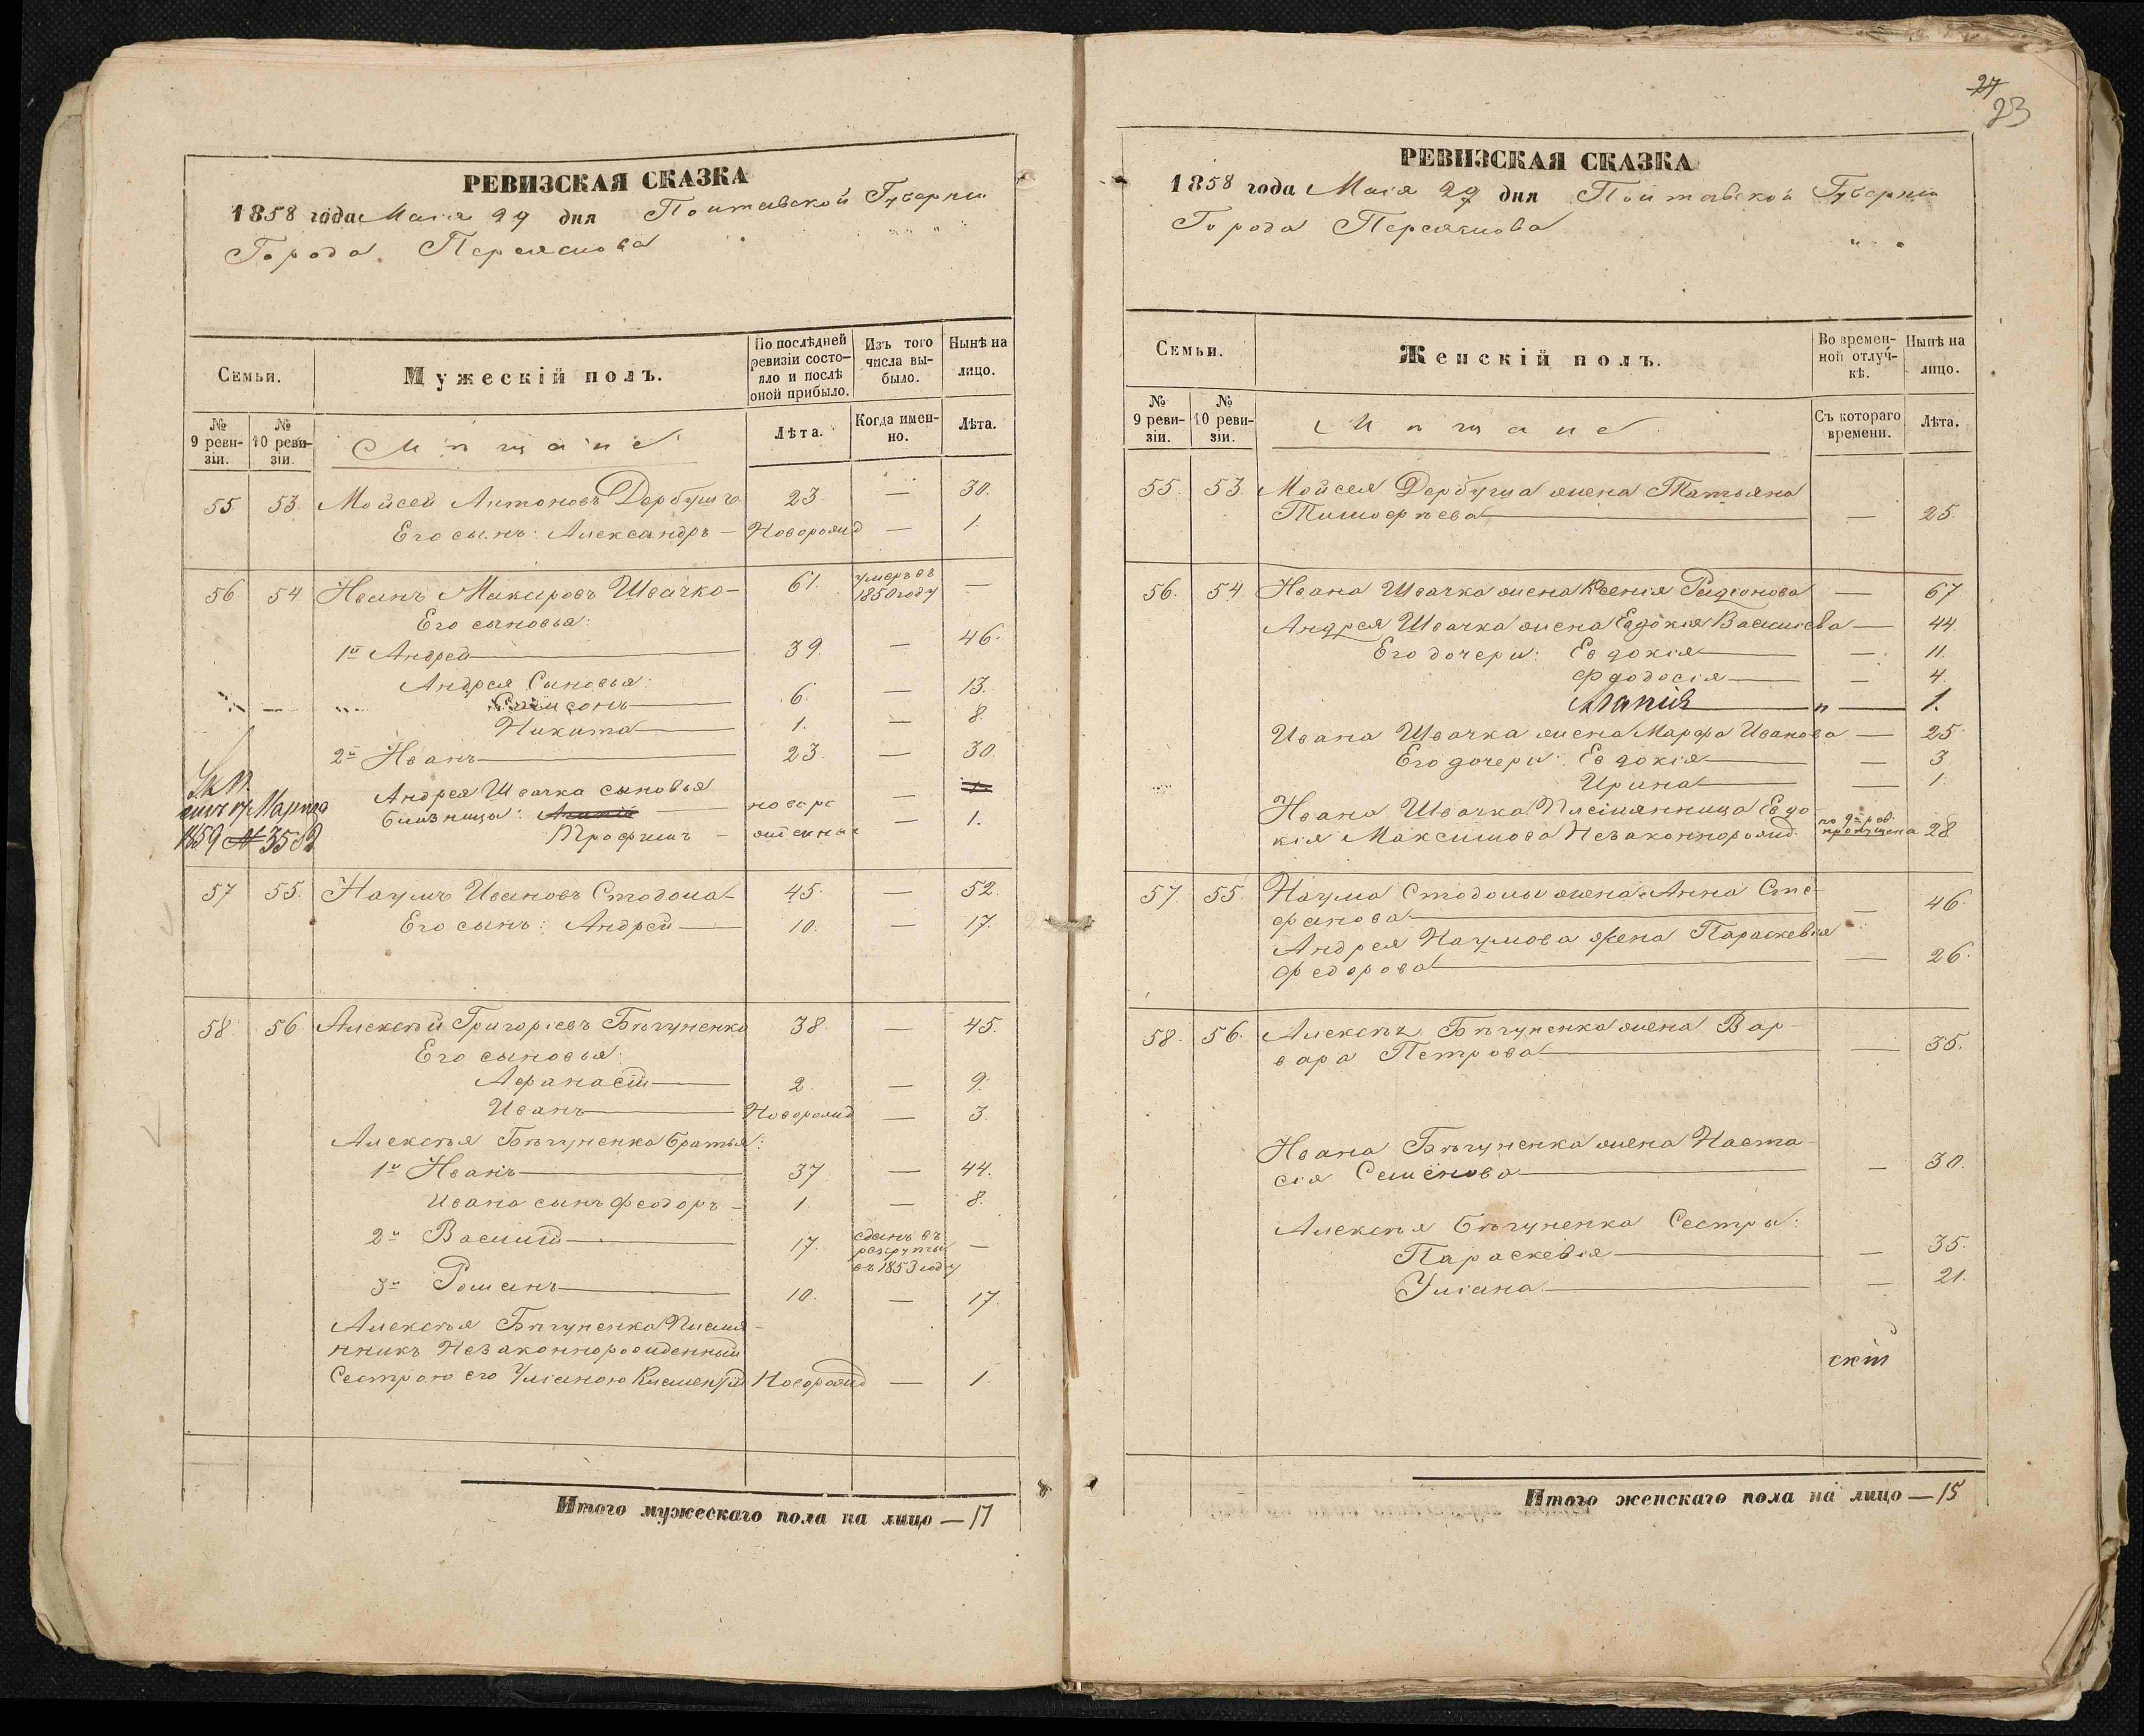 27
23
РЕВИЗСКАЯ СКАЗКА
1858 года Маія 29 дня Полтавской Губерніи
Города Переяслова
Семьи.
Мужескій полъ.
По послѣдней ревизіи состояло и послѣ оной прибыло.
Изъ того числа выбыло.
Нынѣ на лицо.
№ 9 ревизіи.
№ 10 ревизіи.
Мѣщане
Лѣта.
Когда именно.
Лѣта.
55. 53. Мойсей Антоновъ Дербушъ 23. — 30.
Его сынъ: Александръ — Новорожд — 1.
56 54 Иванъ Макаровъ Швачко — 61. умеръ въ 1850 году —
Его сыновья:
1й Андрей 39. — 46.
Андрея Сыновья:
Самсонъ 6. — 13.
Никита 1. — 8.
2й Иванъ 23 — 30.
Андрея Швачка сыновья
близнецы: — 1
Трофимъ — новорожденные — 1.
Марта
1859 № 3582
57 55. Наумъ Ивановъ Стодола — 45. — 52.
Его сынъ: Андрей 10. — 17.
58. 56 Алексѣй Григоріевъ Бѣгуненко 38 — 45.
Его сыновья:
Афанасій 2. — 9.
Иванъ Новорожд — 3.
Алексѣя Бѣгуненка братья:
1й Иванъ 37 — 44.
Ивана сынъ Феодоръ — 1. — 8.
2й Василій 17. сданъ въ рекруты въ 1853 году —
3й Романъ 10. — 17.
Алексѣя Бѣгуненка Племя-
нникъ Незаконнорожденный
Сестрою его Уліаною Климентій Новорожд — 1.
Итого мужескаго пола на лицо — 17
РЕВИЗСКАЯ СКАЗКА
1858 года Маія 29 дня Полтавской Губерніи
Города Переяслова
Семьи.
Женскій полъ.
Во временной отлучкѣ.
Нынѣ на лицо.
№ 9 ревизіи.
№ 10 ревизіи.
Мѣщане
Съ котораго времени.
Лѣта.
55. 53. Мойсея Дербуша жена Татьяна
Тимофѣева — 25.
56. 54 Ивана Швачка жена Ксенія Радіонова — 67
Андрея Швачка жена Евдокія Василіева — 44.
Его дочери: Евдокія — 11.
Федосія — 4.
Агапія — 1.
Ивана Швачка жена Марфа Иванова — 25
Его дочери: Евдокія — 3.
Ирина — 1.
Ивана Швачка Племянница Евдо-
кія Максимова Незаконнорожд. по 9й рев. пропущена 28
57. 55. Наума Стодолы жена Анна Сте-
фанова — 46.
Андрея Наумова жена Параскевія
Федорова — 26.
58. 56. Алексѣя Бѣгуненка жена Вар-
вара Петрова — 35.
Ивана Бѣгуненка жена Наста-
сія Семенова — 30.
Алексѣя Бѣгуненка Сестры:
Параскевія — 35.
Уліана — 21.
скій
Итого женскаго пола на лицо — 15